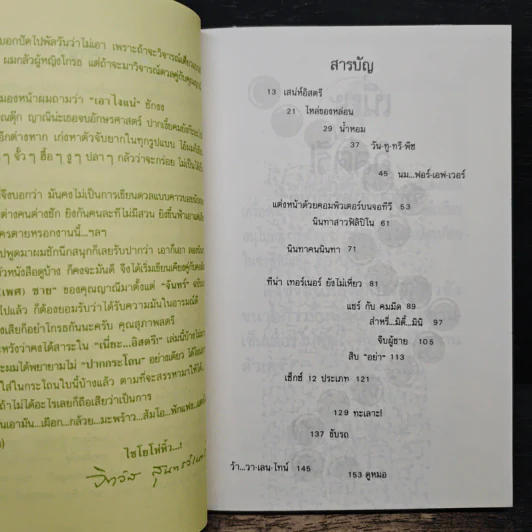 บอกปัดไปพัลวันว่าไม่เอา เพราะถ้าจะวิจารณ์เดี่ยว
ผมกลัวผู้หญิงโกรธ แต่ถ้าจะมาวิจารณ์ดวลคู่กับคุณ
มองหน้าผมถามว่า "เอาไงแน่" ชักงง
ญาณีน่ะเธอจบอักษรศาสตร์
อีกต่างหาก เก่งหาตัวจับยากในทุกรูปแบบ
ๆ จั๊ว ๆ ฮื้อ ๆ งู ๆ ปลา ๆ กลัวว่าจะกร่อย
จึงบอกว่า มันคงไม่เป็นการเขียนดวลแบบคาวบอย
ต่างคนต่างชัก ยิงกันคนละทีไม่มีสวน ยิงขึ้นฟ้าเอา
ครตายหรอกงานนี้...ฯลฯ
ไปพูดมาผมชักนึกสนุกก็เลยรับปากว่า เอาก็เอา
ตัวหนังสือดูบ้าง ก็คงจะมันดี จึงได้เริ่มเขียนเคียงคู่กับ
(เพศ) ชาย" ของคุณญาณีมาตั้งแต่ "จันทร์"
ไปแล้ว ก็ต้องยอมรับว่าได้รับความมันในอารมณ์ดี
งเสียก็อย่าโกรธกันนะครับ คุณสุภาพสตรี
หวังว่าคงได้สาระใน "เนี่ยะ...อิสตรี" เล่มนี้บ้าง
ะผมได้พยายามไม่ "ปากกระโถน" อย่างเดียว
ใส่ในกระโถนใบนี้บ้างแล้ว ตามที่จะสรรหามาให้ได้
ถ้าไม่ได้อะไรเลยก็ถือเสียว่าเป็นการ
...เผือก...กล้วย...มะพร้าว...ส้มโอ...ฟักแฟง
ไชโยโห่หิ้ว...!
สารบัญ
13 เสน่ห์อิสตรี
21 ไหล่ของหล่อน
29 น้ำหอม
37 วัน-ทู-ทรี-พีช
45 นม...ฟอร์-เอฟ-เวอร์
แต่งหน้าด้วยคอมพิวเตอร์บนจอทีวี 53
นินทาสาวฟิลิปิโน 61
นินทาคนนินทา 71
ทีน่า เทอร์เนอร์ ยังไม่เหี่ยว 81
แชร์ กับ คมมีด 89
ส่าหรี...มิดี้...มินิ 97
จีบผู้ชาย 105
สิบ "อย่า" 113
เซ็กซ์ 12 ประเภท 121
129 ทะเลาะ!
137 ขับรถ
ว้า...วา-เลน-ไทน์ 145
153 ดูหมอ